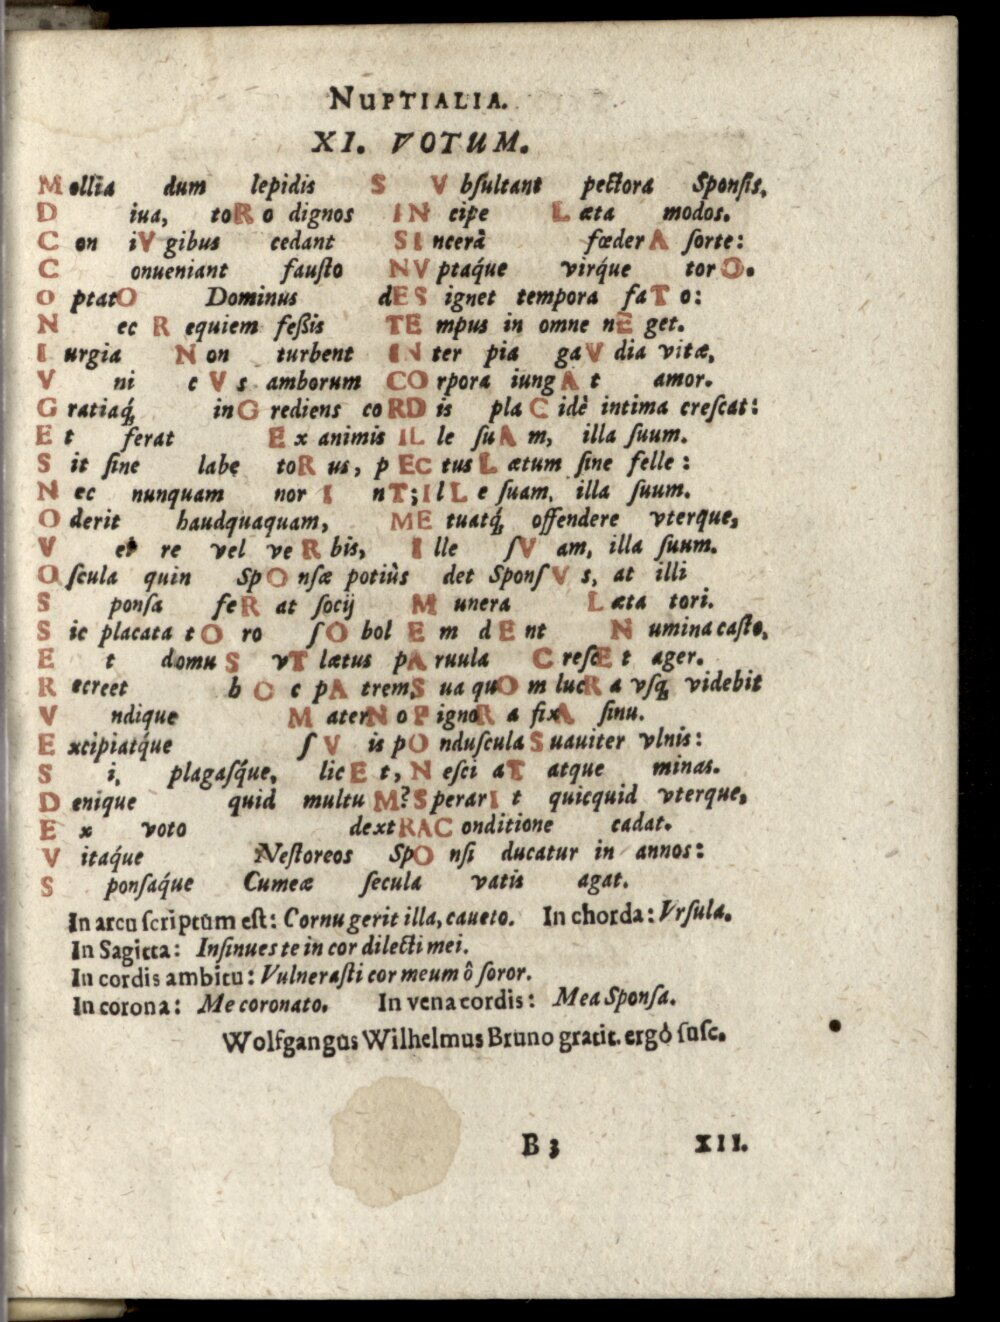 NUPTIALIA.
XI. VOTUM.
Mollia dum lepidis SVbſultant pectora Sponſis,
Diua, toRo dignos INcipe Læta modos.
Con iVgibus cedant SIncerà fœderA ſorte:
Conueniant fauſto NVptaq́ue virq́ue torO.
OptatO Dominus dESignet tempora faTo:
Nec Requiem feßis TEmpus in omne nEget.
Iurgia Non turbent INter pia gaVdia vitæ,
Vni cVs amborum COrpora iungAt amor.
Gratiaq́ inGrediens coRDis plaCidè intima creſcat:
Et ferat Ex animis ILle ſuAm, illa ſuum.
Sit ſine labe toRus, pECtusLætum ſine felle:
Nec nunquam norInT;IlLe ſuam, illa ſuum.
Oderit haudquaquam, MEtuatq́ offendere vterque,
Vel re vel veRbis, Ille ſVam, illa ſuum.
Oſcula quin SpOnſæ potiùs det SponſVs, at illi
Sponſa feRat ſocij Munera Læta tori.
Sic placata tOro ſObolEm dEnt Numina caſto,
Et domuS vT lætus pAruula CreſcEt ager.
Recreet hOc pAtremSua quOm lucRa vſq́ videbit
Vndique MaterNoPignoRa fixA ſinu.
Excipiatq́ue ſVis pOnduſculaSuauiter vlnis:
Si, plagaſq́ue, licEt, Neſci aT atque minas.
Denique quid multuM?SperarIt quicquid vterque,
Ex voto dextRAConditione cadat.
Vitaq́ue Neſtoreos SpOnſi ducatur in annos:
Sponſaq́ue Cumeæ ſecula vatis agat.
In arcu ſcriptum eſt: Cornu gerit illa, caueto. In chorda: Vrſula.
In Sagitta: Inſinues te in cor dilecti mei.
In cordis ambitu: Vulneraſti cor meum ô ſoror.
In corona: Me coronato. In vena cordis: Mea Sponſa.
Wolfgangus Wilhelmus Bruno gratit. ergò ſuſc.
B 3 XII.